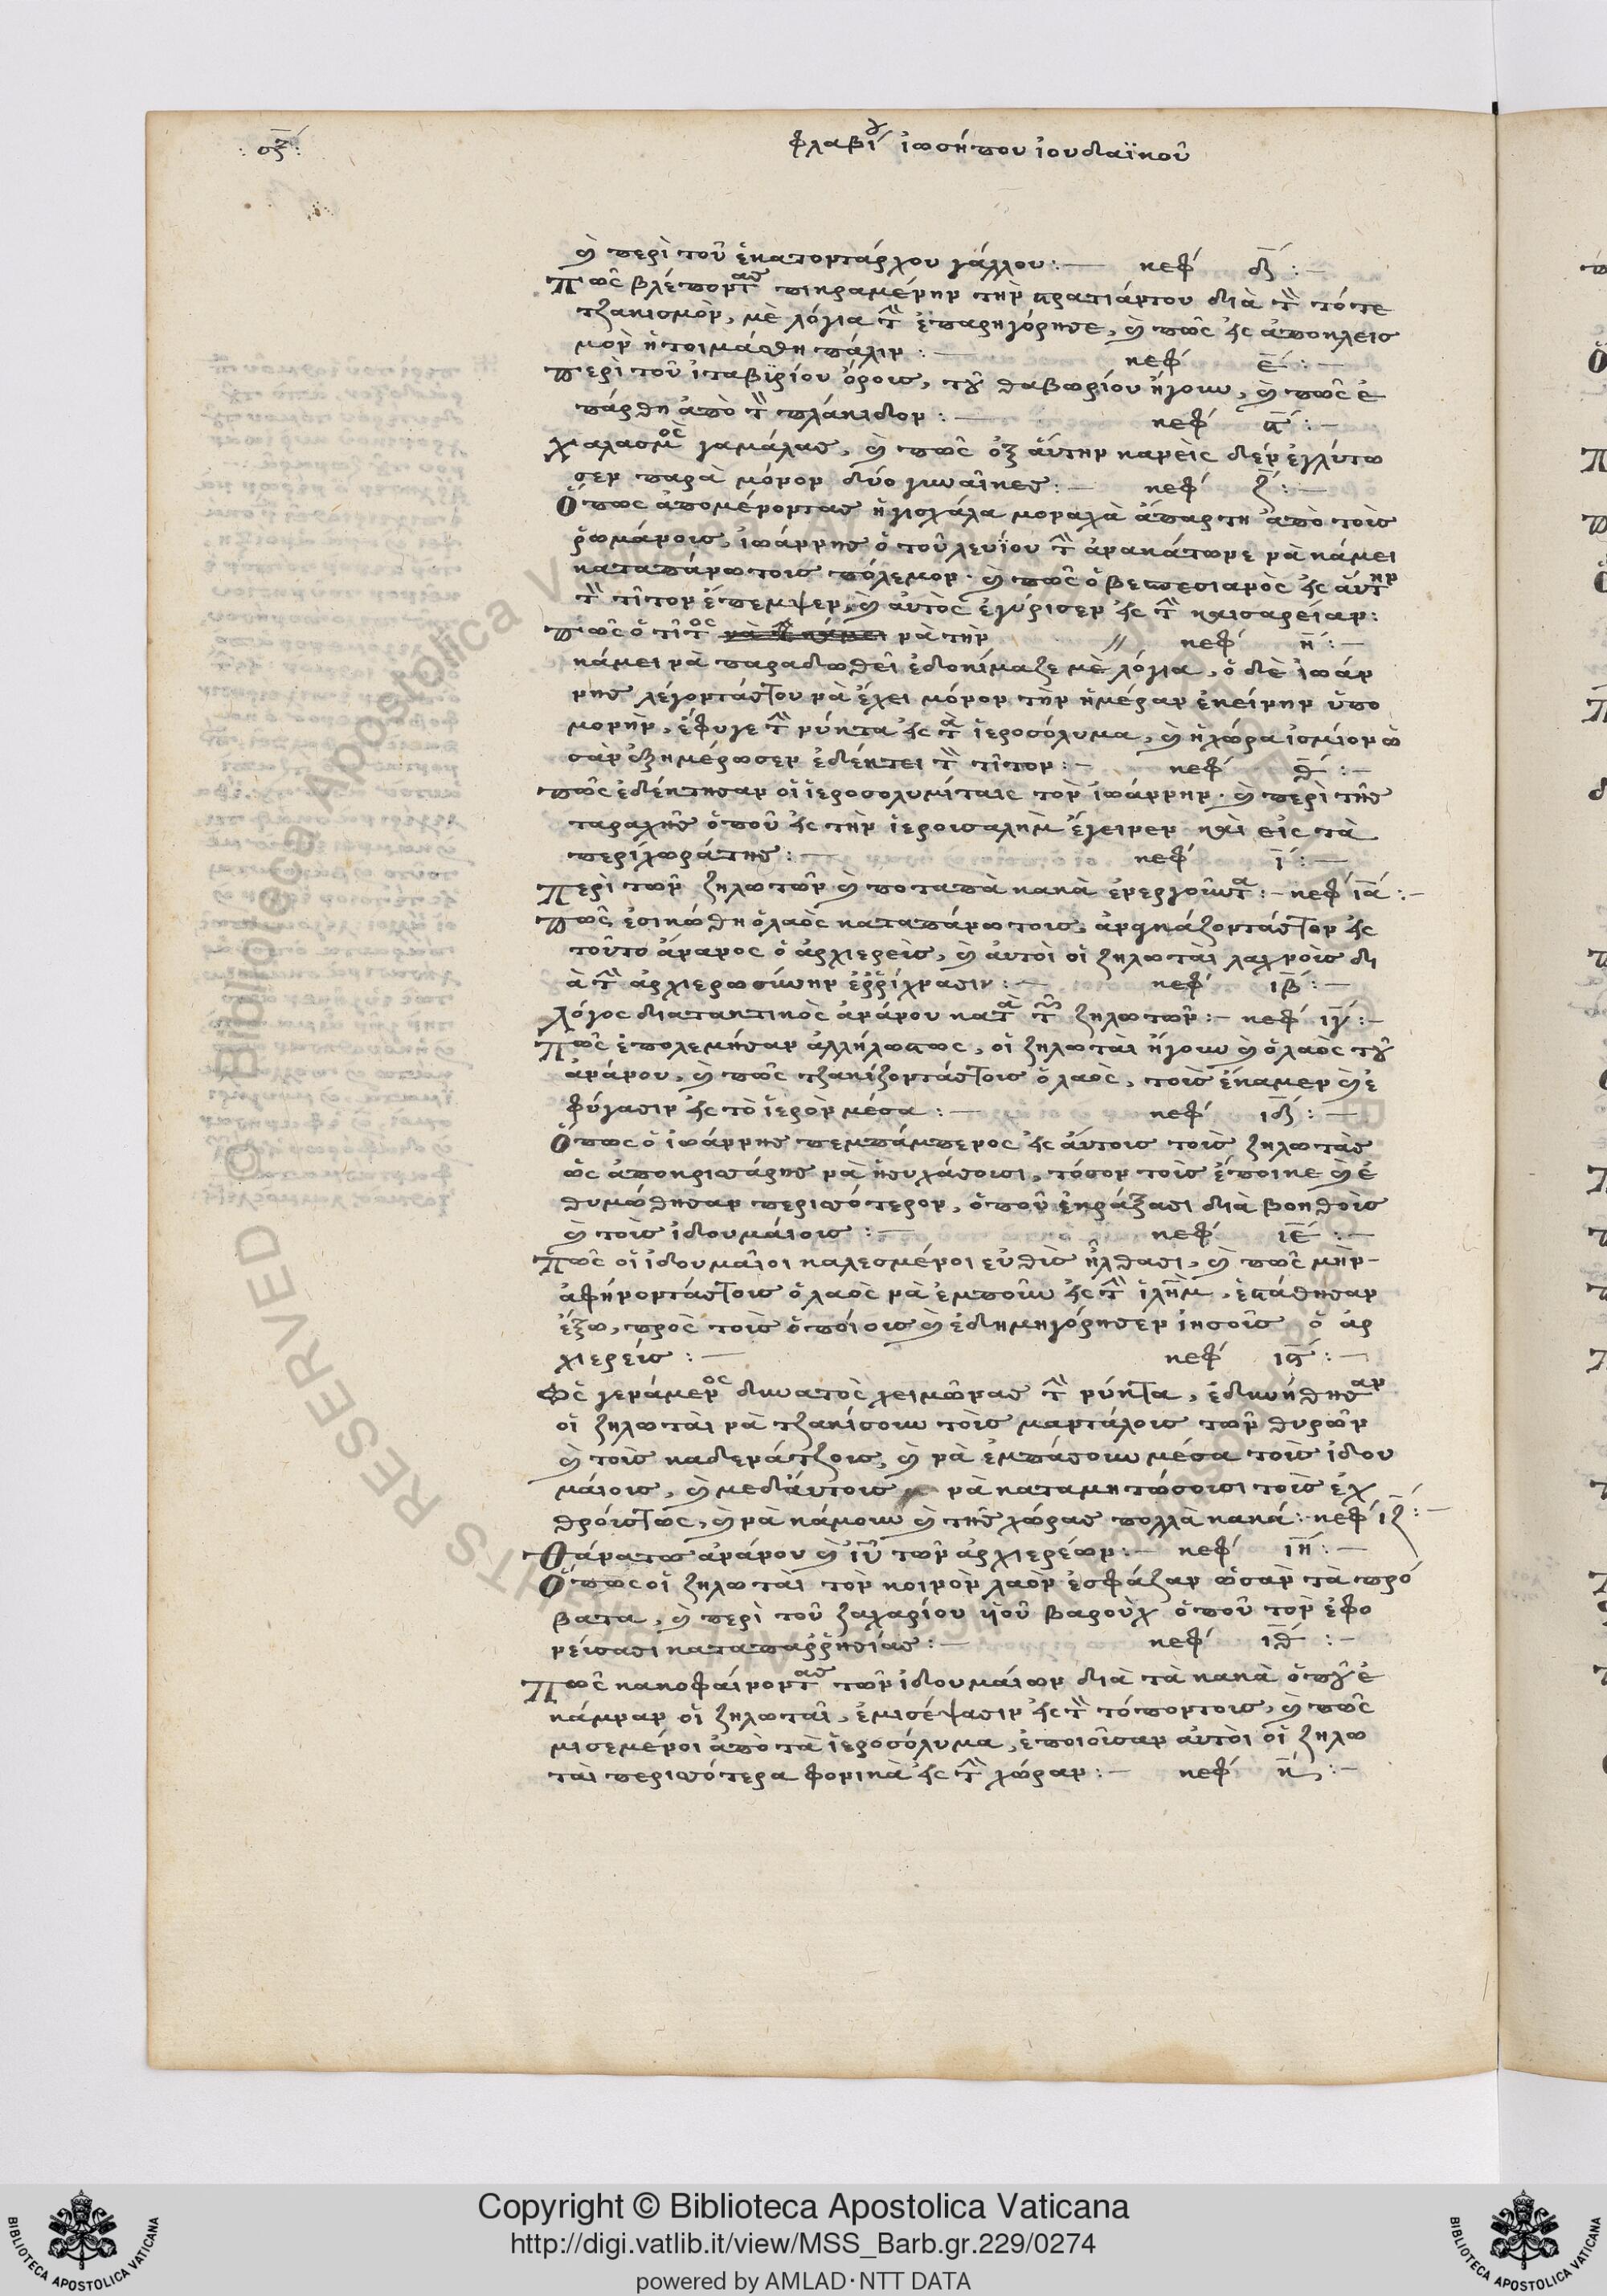 : σξ :
φλαβίου ἰωσήπου ἰουδαϊκοῦ
ϗ περὶ τοῦ ἑκατοντάρχου γάλλου :— κεφ δ̅ : —
Πῶς βλέποντας πικραμένην τὴν στρατιάντου διὰ τὸν τότε
τζακισμὸν, μὲ λόγια τὴν ἐπαρηγόρησε, ϗ πῶς εἰς ἀποκλεισ
μὸν ἡτοιμάσθη πάλιν : — κεφ ε̅ : —
Περὶ τοῦ ἰταβϊρίου ὄροισ, τοῦ θαβωρίου ἤγουν, ϗ πῶς ἐ
πάρθη ἀπὸ τὸν πλάκιδον : — κεφ ϛ̅ : —
Χαλασμὸς γαμάλας, ϗ πῶς ἐξ ἄυτην κανεὶς δὲν ἐγλύτω
σεν παρὰ μόνον δύο γυναῖκες : — κεφ ζ̅ : —
Ὅπως ἀπομένοντας ἡ γισχάλα μοναχὰ ἄπαρτη ἀπὸ τοὶσ
ῥωμάνοισ, ἰωάννης ὁ τοῦ λευΐου τὴν ἀνακάτωνε νὰ κάμει
καταπάνωτοισ πόλεμον · ϗ πῶς ὁ βεσπεσιανὸς εἰς ἄυτην
τὸν τῖτον ἔπεμψεν, ϗ αὐτὸς ἐγύρισεν εἰς τὴν καισαρείαν :
Πῶς ὁ τῖτος νὰ τὴν κάμει νὰ τὴν // κεφ η̅ : —
κάμει νὰ παραδωθεῖ ἐδοκίμαζε μὲ λόγια, ὁ δὲ ἰωάν
νης λέγοντάςτου νὰ ἔχει μόνον τὴν ἡμέραν ἐκείνην ὑπο
μονὴν, ἔφυγε τὴν νύκτα εἰς τὰ ἱεροσόλυμα, ϗ ἡ χώρα ἰσμίον ὡ
σὰν ἐξημέρωσεν ἐδέκτει τὸν τῖτον : — κεφ θ̅ : —
Πῶς ἐδέκτησαν οἱ ἱεροσολυμίταις τὸν ἰωάννην · ϗ περὶ τῆς
ταραχῆς ὁποῦ εἰς τὴν ἱεροισαλὴμ ἔγεινεν καὶ εἰς τὰ
περίχωράτης : — κεφ ι̅ : —
Περὶ τῶν ζηλωτῶν ϗ ποταπὰ κακὰ ἐνεργοῦντα : — κεφ ια̅ : —
Πῶς ἐσικώθη ὁ λαὸς καταπάνωτοισ, ἀναγκάζοντάςτον εἰς
τοῦτο ἄνανος ὁ ἀρχιερεὶς, ϗ ἀυτοὶ οἱ ζηλωτάι λαχνοὶσ δι
ὰ τὴν ἀρχιερωσύνην ἐῤῥίχνασιν : — κεφ ιβ̅ : —
Λόγος διατακτικὸς ἀνάνου κατὰ τῶν ζηλωτῶν : — κεφ ιγ̅ : —
Πῶς ἐπολεμήσαν ἀλλήλωστως, οἱ ζηλωταὶ ἤγουν ϗ ὁ λαὸς τοῦ
ἀνάνου, ϗ πῶς τζακίζοντάςτοισ ὁ λαὸς, τοὶσ ἔκαμεν ϗ ἐ
φύγασιν εἰς τὸ ἱερὸν μέσα : — κεφ ιδ̅ : —
Ὅπως ὁ ἰωάννης πεμπάμπενος εἰς ἄυτοισ τοὶσ ζηλωτὰς
ὡς ἀποκρισάρης νὰ ἡσυχάσοισι, τόσον τοὶσ ἔποικε ϗ ἐ
θυμώθησαν περισσότερον, ὁποῦ ἐκράξασι διὰ βοηθοὶσ
ϗ τοὶσ ἰδουμάιοισ : — κεφ ιε̅ : —
Πῶς οἱ ἰδουμαῖοι καλεσμένοι εὐθὶσ ἦλθασι, ϗ πῶς μὴν-
ἀφήνοντάςτοισ ὁ λαὸς νὰ ἐμποῦν εἰς τὴν ἱλὴμ, ἐστάθησαν
ἔξω, πρὸς τοὶσ ὁποίοισ ϗ ἐδημηγόρησεν ἰησοῖσ ὁ ἀρ
χιερείσ : — κεφ ιϛ̅ : —
Ὡς γενάμενος δυνατὸς χειμῶνας τὴν νύκτα, ἐδυνήθησαν
οἱ ζηλωτάι νὰ τζακίσουν τοὶσ μαντάλοισ τῶν θυρῶν
ϗ τοὶσ καδενάτζοισ, ϗ νὰ ἐμπάσουν μέσα τοὶσ ἰδου
μάιοισ, ϗ μεδἄυτοισ νὰ καταμητώσοισι τοὶσ ἐχ
θρόιστως, ϗ νὰ κάμουν ϗ τῆς χώρας πολλὰ κακά : κεφ ιζ̅ : —
Θάνατως ἀνάνου ϗ ἰῦ τῶν ἀρχιερέων : — κεφ ιη̅ : —
Ὅπως οἱ ζηλωτάι τὸν κοινὸν λαὸν ἐσφάζαν ὡσὰν τὰ πρό
βατα, ϗ περὶ τοῦ ζαχαρίου ὑιοῦ βαρούχ ὁποῦ τὸν ἐφο
νείσασι καταπαῤῥησίας : — κεφ ιθ̅ : —
Πῶς κακοφαίνοντας τῶν ἰδουμάιων διὰ τὰ κακὰ ὁποῦ ἐ
κάμναν οἱ ζηλωταῖ, ἐμισέψασιν εἰς τὸν τόποντοισ, ϗ πῶς
μισεμένοι ἀπὸ τὰ ἱεροσόλυμα, ἐποιοῖσαν αὐτὸι οἱ ζηλω
τάι περισσότερα φονικὰ εἰς τὴν χώραν : — κεφ κ̅ : —
© Biblioteca Apostolica Vaticana
Copyright © Biblioteca Apostolica Vaticana
http://digi.vatlib.it/view/MSS_Barb.gr.229/0274
powered by AMLAD·NTT DATA
BIBLIOTECA APOSTOLICA VATICANA
BIBLIOTECA APOSTOLICA VATICANA